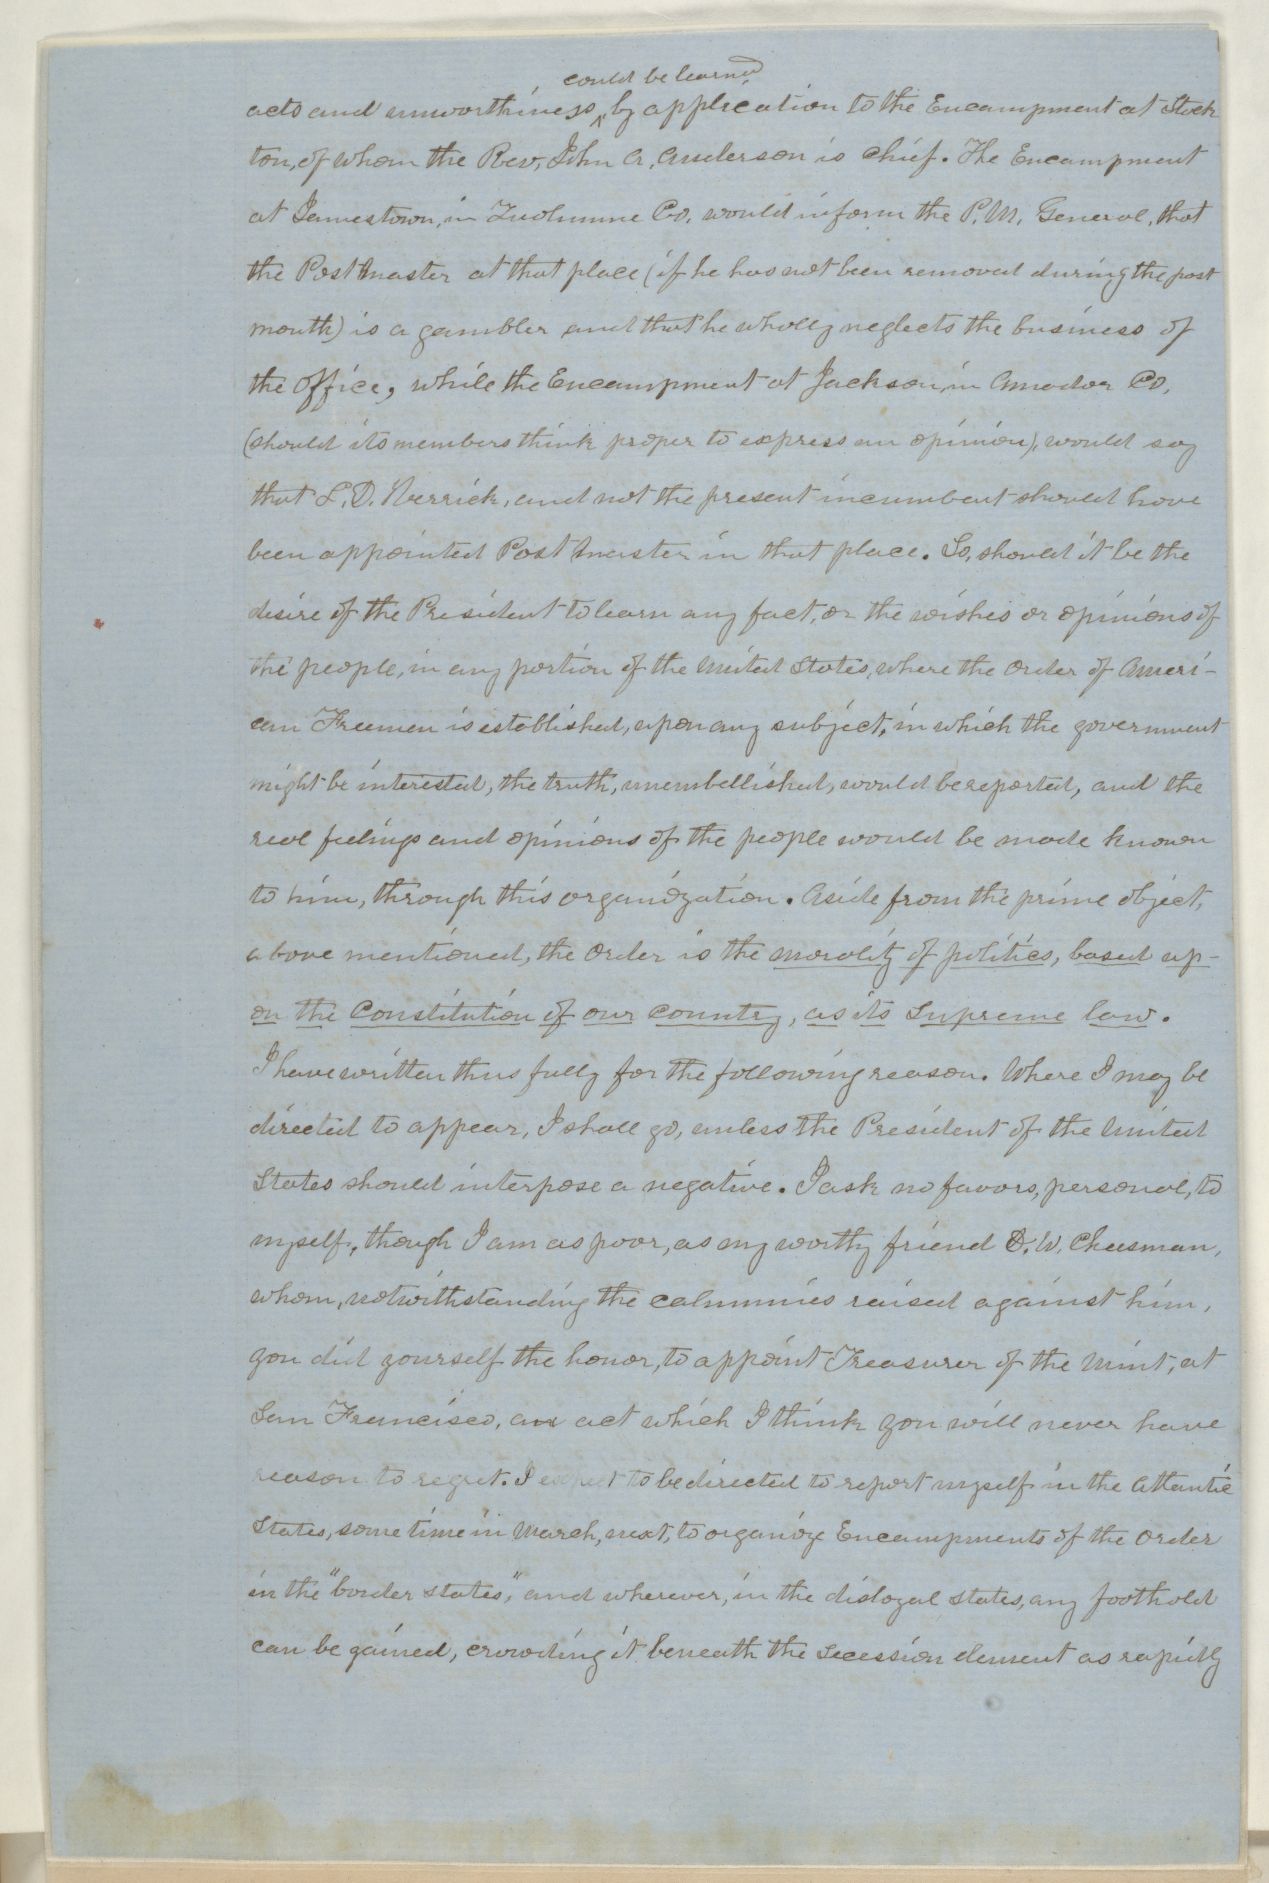 could be learned
acts and unworthiness ^ by application to the Encampment at Stock
ton, of whom the Rev. John A. Anderson is chief. The Encampment
at Jamestown, in Tuolumne Co. would inform the P. M. General, that
the Post Master at that place (if he has not been removed during the past
month) is a gambler and that he wholly neglects the business of
the office, while the Encampment at Jackson, in Amador Co,
(should its members think proper to express an opinion), would say
that L. D. Nerrick, and not the present incumbent should have
been appointed Post Master in that place. So, should it be the
desire of the President to learn any fact, or the wishes or opinions of
the people, in any portion of the United States, where the Order of Ameri-
can Freemen is established, upon any subject, in which the government
might be interested, the truth, unembellished, would be reported, and the
real feelings and opinions of the people would be made known
to him, through this organization. Aside from the prime object,
above mentioned, the Order is the morality of politics, based up-
on the Constitution of our country, as its supreme law.
I have written thus fully for the following reason. Where I may be
directed to appear, I shall go, unless the President of the United
States should interpose a negative. I ask no favors, personal, to
myself, though I am as poor, as my worthy friend D. W. Cheesman,
whom, notwithstanding the calumnies raised against him,
you did yourself the honor, to appoint Treasurer of the Mint, at
San Francisco, an act which I think you will never have
reason to regret. I expect to be directed to report myself in the Atlantic
States, some time in March, next, to organize Encampments of the Order
in the "border states," and wherever, in the disloyal states, any foothold
can be gained, crowding it beneath the secession element as rapidly